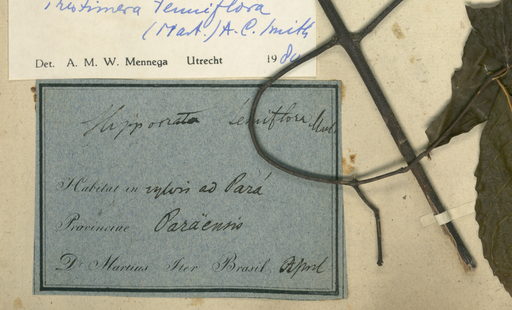 Pristimera Tenuiflora
(Mart.) A.C. Smith
Det. A. M. W. Mennega Utrecht 1980
Hippocratea tenuiflora Mart.
Habitat in sylvis ad Pará
Provinciae Paraënsis
Dr Martius Iter Brasil. April